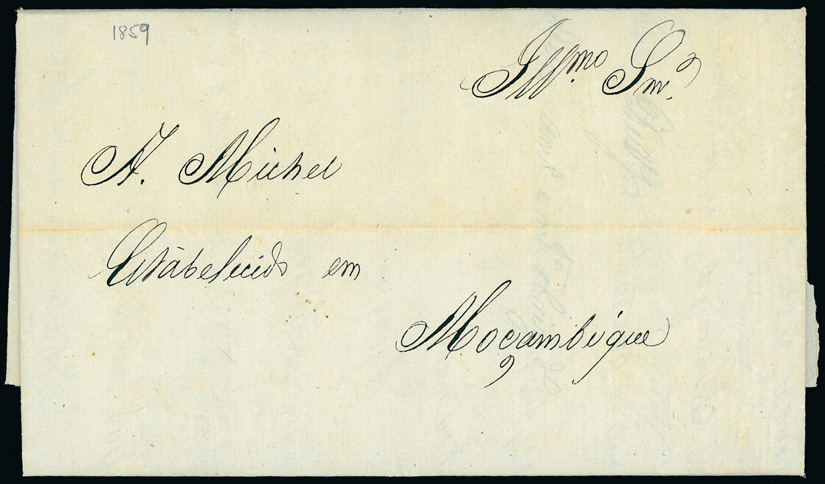 1859
Ill.mo Snr.
A. Michel
Estabelecido em
Moçambique